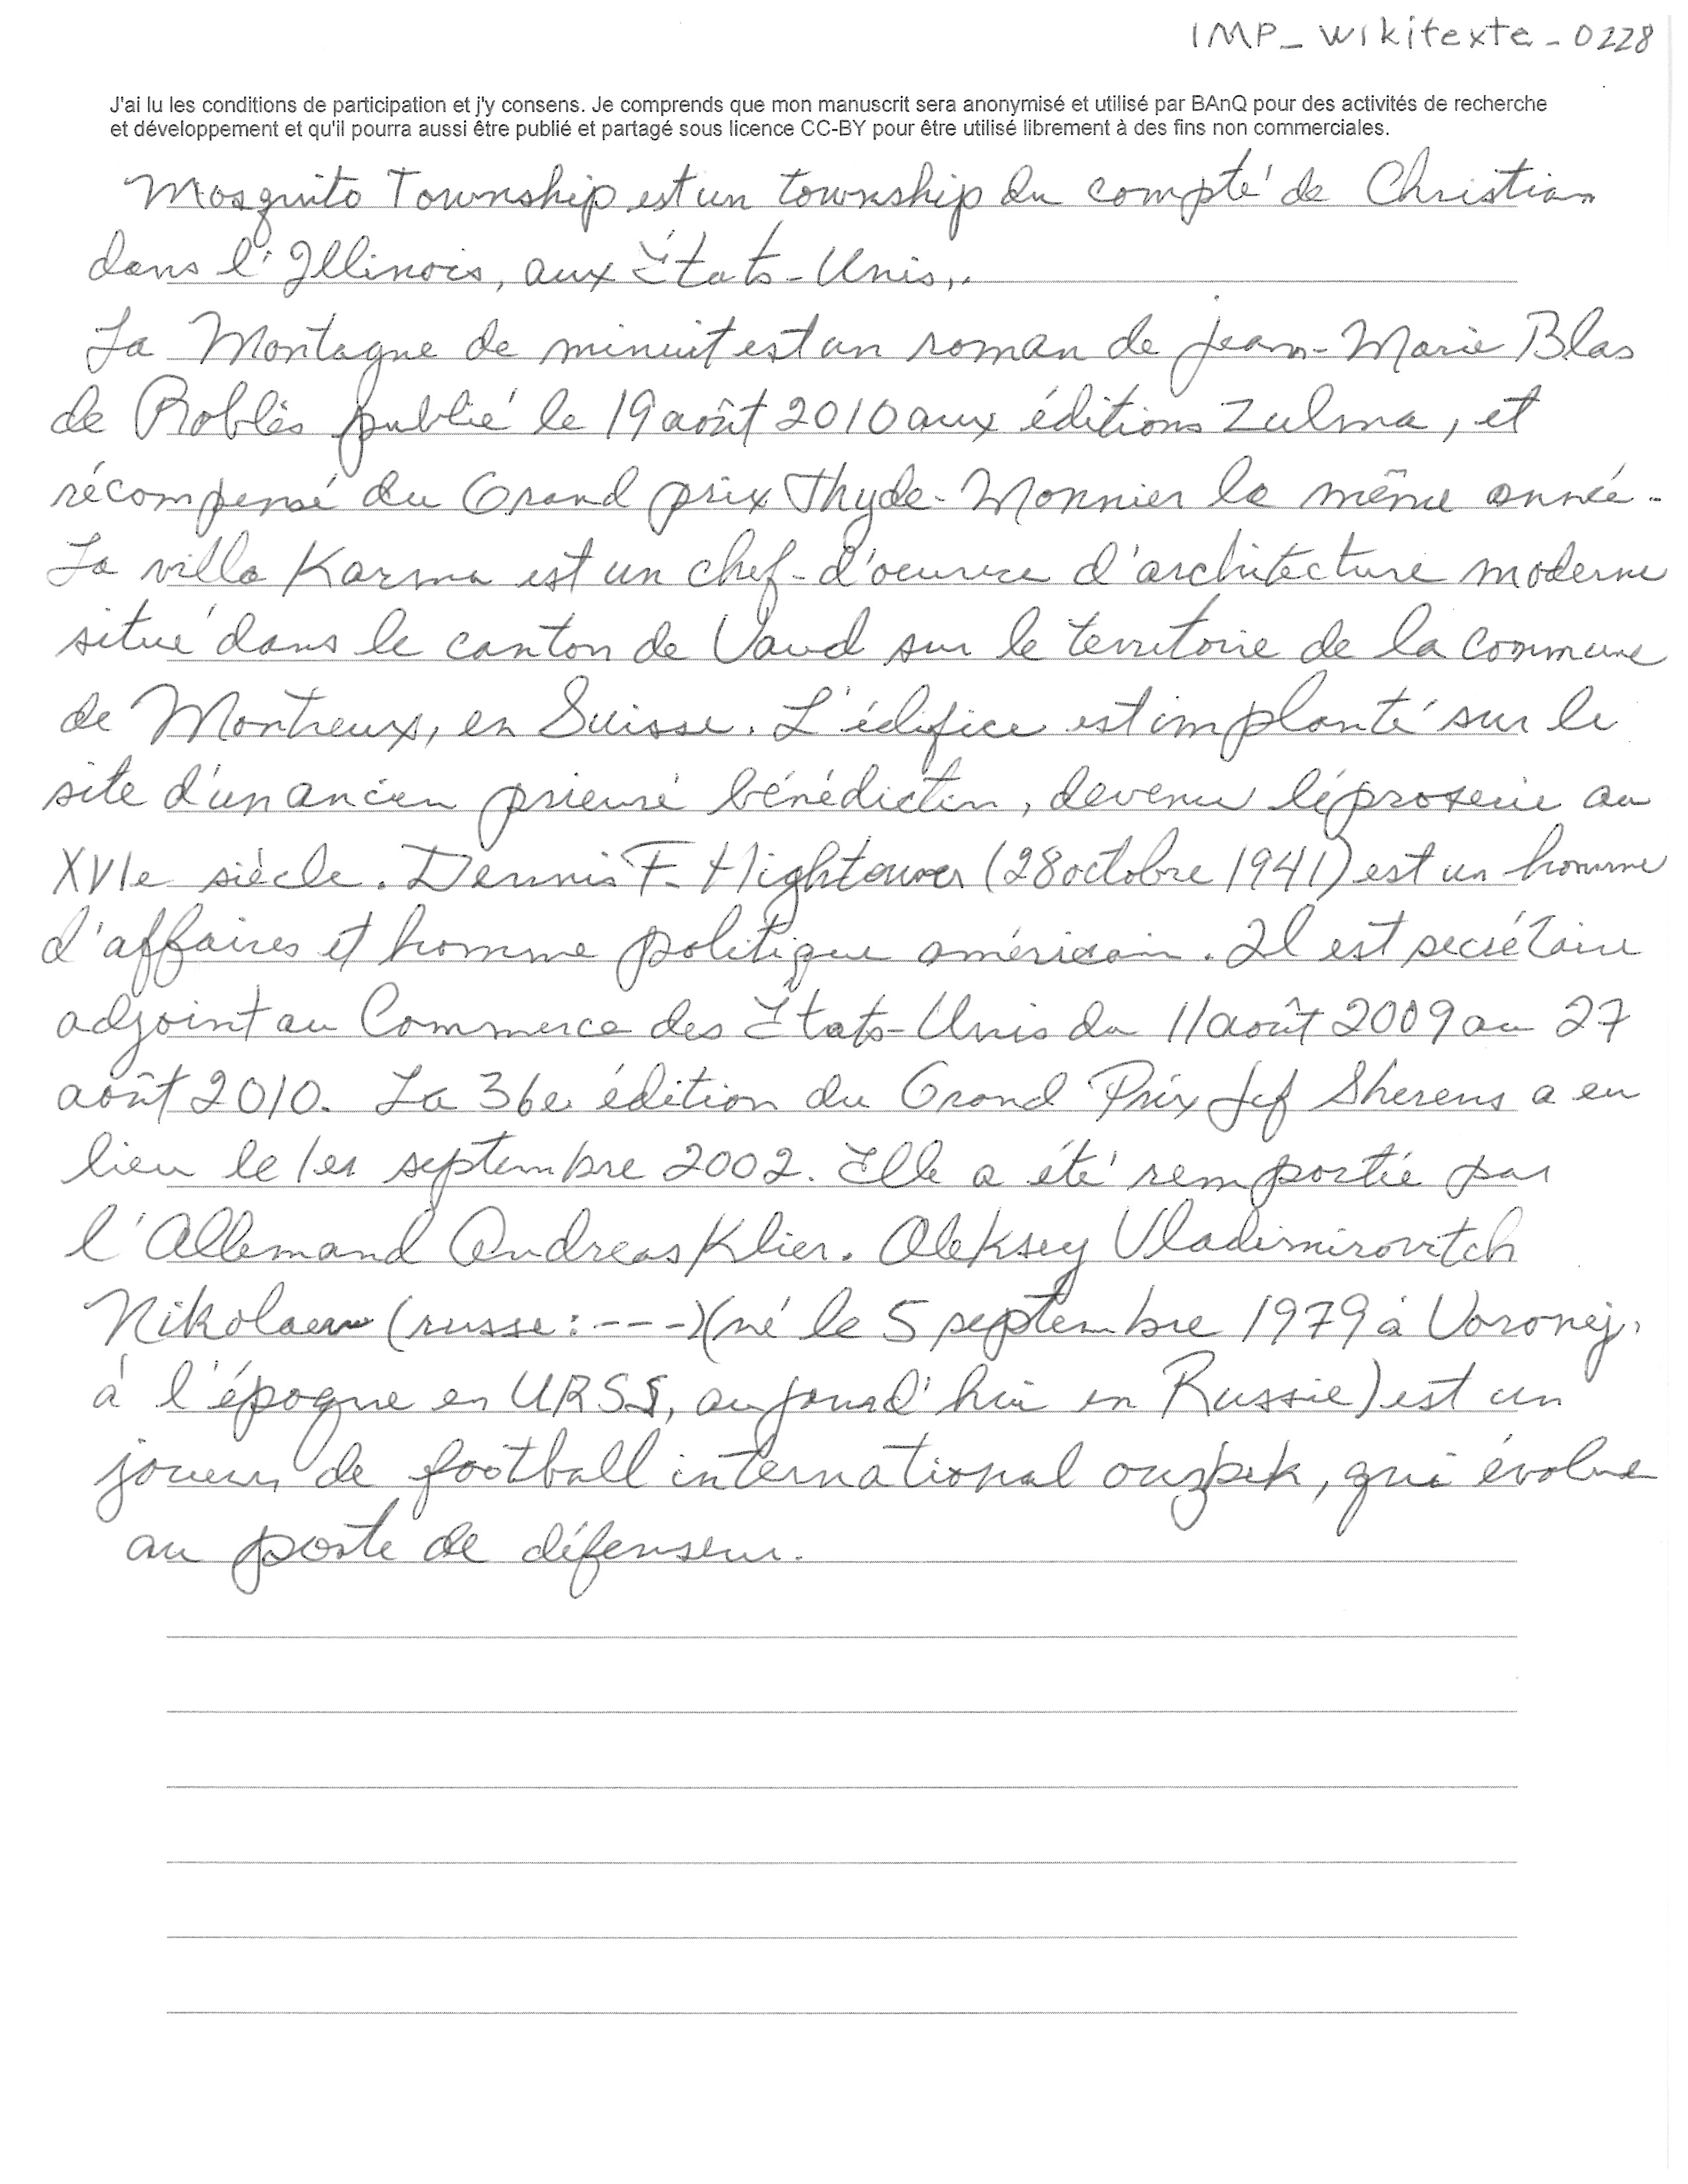 IMP_wikitexte_0228
J'ai lu les conditions de participation et j'y consens. Je comprends que mon manuscrit sera anonymisé et utilisé par BAnQ pour des activités de recherche
et développement et qu'il pourra aussi être publié et partagé sous licence CC-BY pour être utilisé librement à des fins non commerciales.
Mosquito Township est un township du compté de Christian
dans l'Illinois, aux États-Unis,.
La Montagne de minuit est un roman de Jean-Marie Blas
de Roblès publié le 19 août 2010 aux éditions Zulma, et
récompensé du Grand prix Thyde-Monnier la même année.
La villa Karma est un chef-d'oeuvre d'architecture moderne
situé dans le canton de Vaud sur le territoire de la commune
de Montreux, en Suisse. L'édifice est implanté sur le
site d'un ancien prieuré bénédictin, devenu léproserie au
XVIe siècle. Dennis F. Hightower (28 octobre 1941) est un homme
d'affaires et homme politique américain. Il est secrétaire
adjoint au Commerce des États-Unis du 11 août 2009 au 27
août 2010. La 36e édition du Grand Prix Jef Sherens a eu
lieu le 1er septembre 2002. Elle a été remportée par
l'Allemand Andreas Klier. Oleksey Vladimirovitch
Nikolaev (russe : ---) (né le 5 septembre 1979 à Voronej,
à l'époque en URSS, aujourd'hui en Russie) est un
joueur de football international ouzbek, qui évolue
au poste de défenseur.